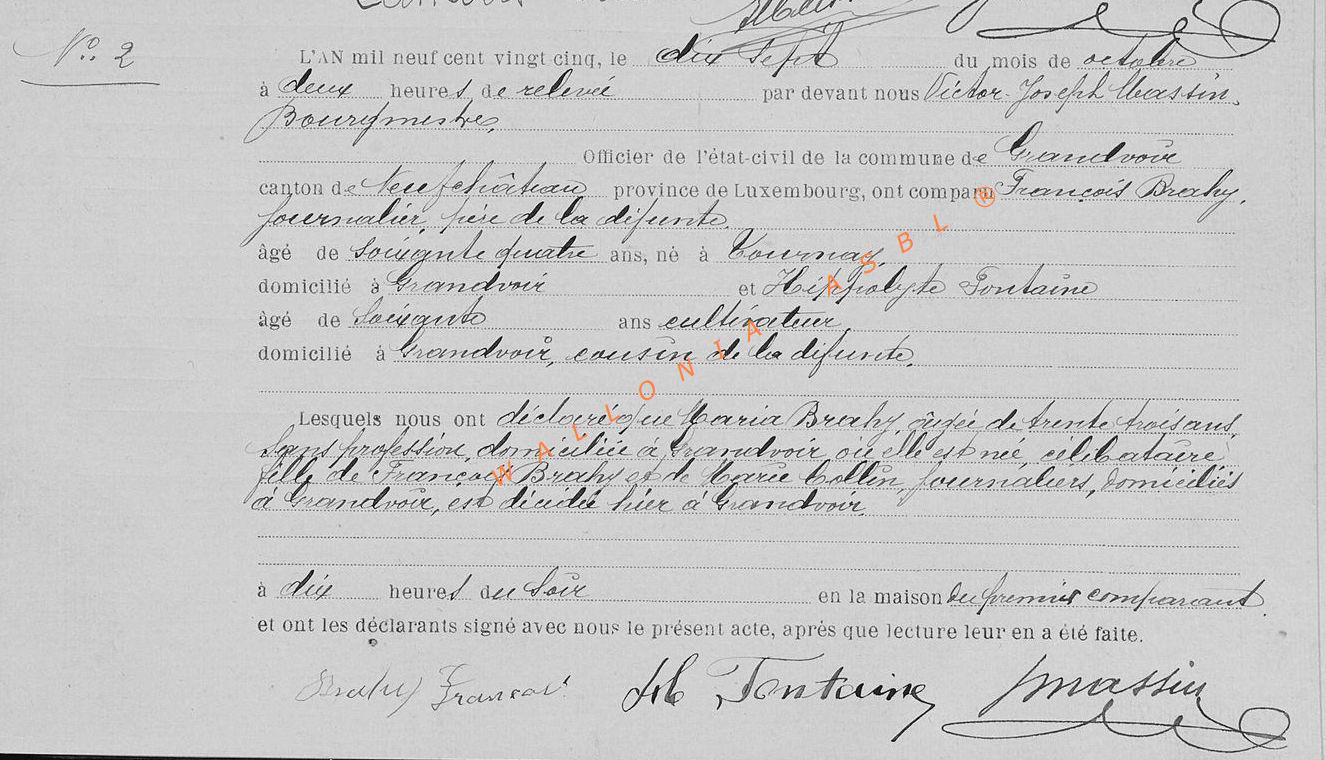 No. 2
L'AN mil neuf cent vingt cinq, le dix Sept du mois de octobre
à deux heures de relevée par devant nous Victor Joseph Massin,
Bourgmestre,
Officier de l'état-civil de la commune de Grandvoir
canton de Neufchâteau province de Luxembourg, ont comparu François Brahy,
journalier, père de la défunte,
âgé de Soixante quatre ans, né à Tournay,
domicilié à Grandvoir et Hippolyte Fontaine
âgé de Soixante ans cultivateur,
domicilié à Grandvoir, cousin de la défunte,
Lesquels nous ont déclaré que Maria Brahy, âgée de trente trois ans,
Sans profession, domiciliée à Grandvoir, où elle est née, célibataire
fille de François Brahy et de Marie Collin, journaliers, domiciliés
à Grandvoir, est décédée hier à Grandvoir
à dix heures du Soir en la maison du premier comparant
et ont les déclarants signé avec nous le présent acte, après que lecture leur en a été faite.
Brahy François Fontaine Massin
WALLONIA ASBL ®